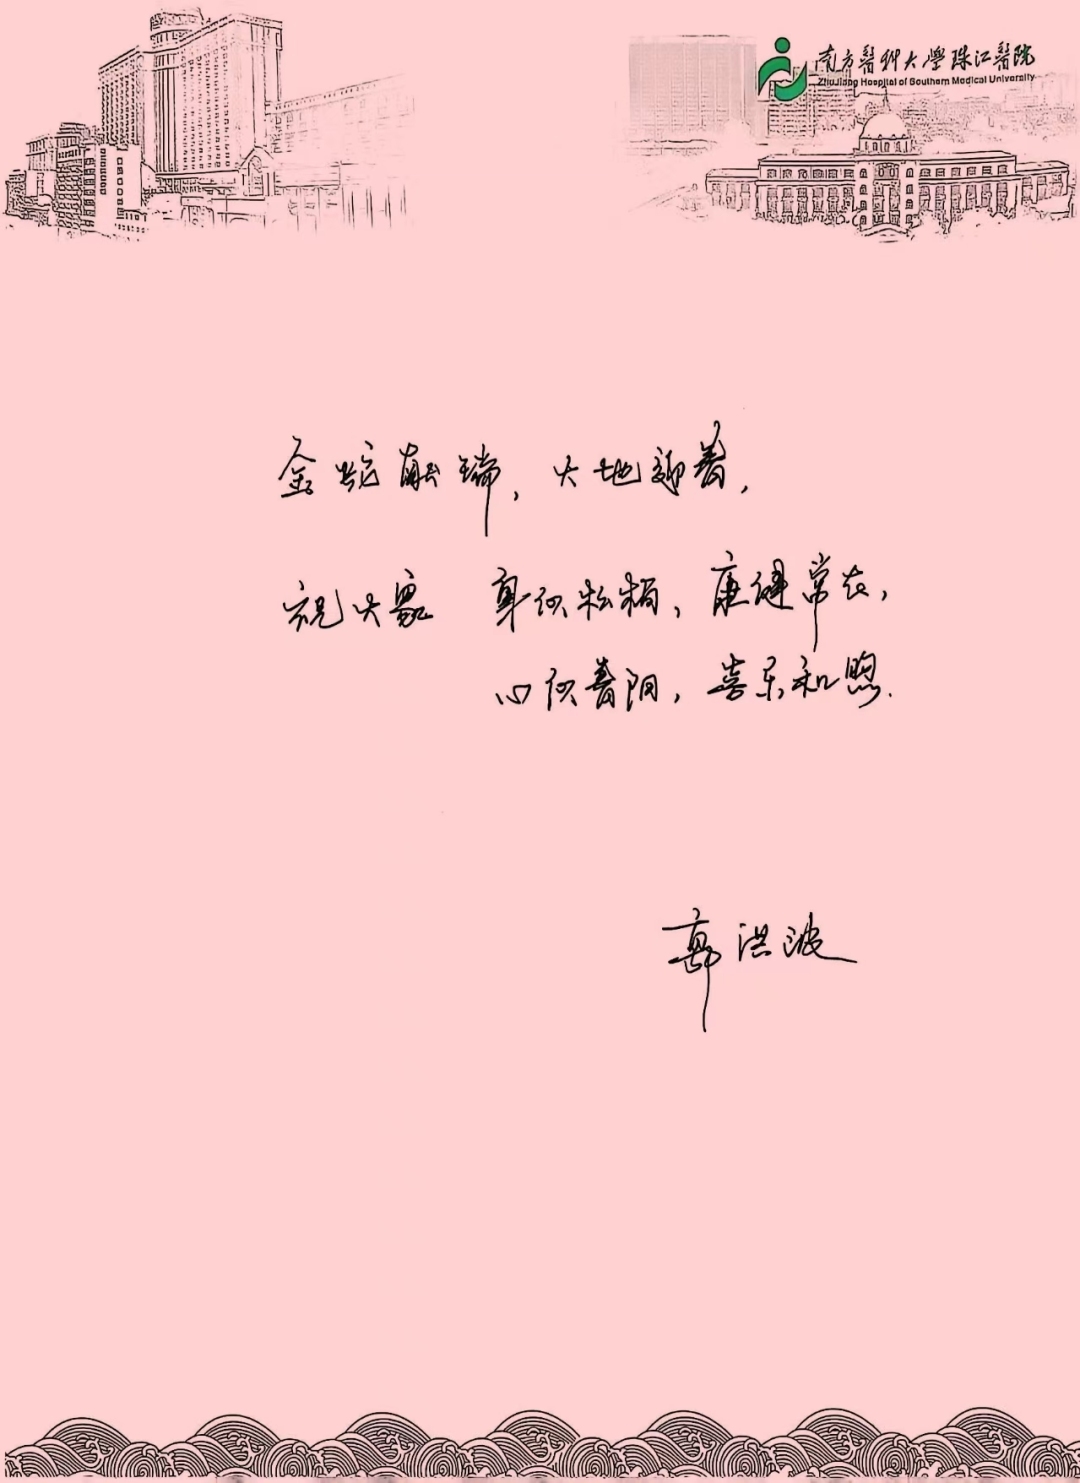 南方醫科大學珠江醫院
ZhuJiang Hospital of Southern Medical University
金蛇献瑞，大地迎春，
祝大家 身似松柏，康健常在，
心似春阳，喜乐和煦.
郭洪波